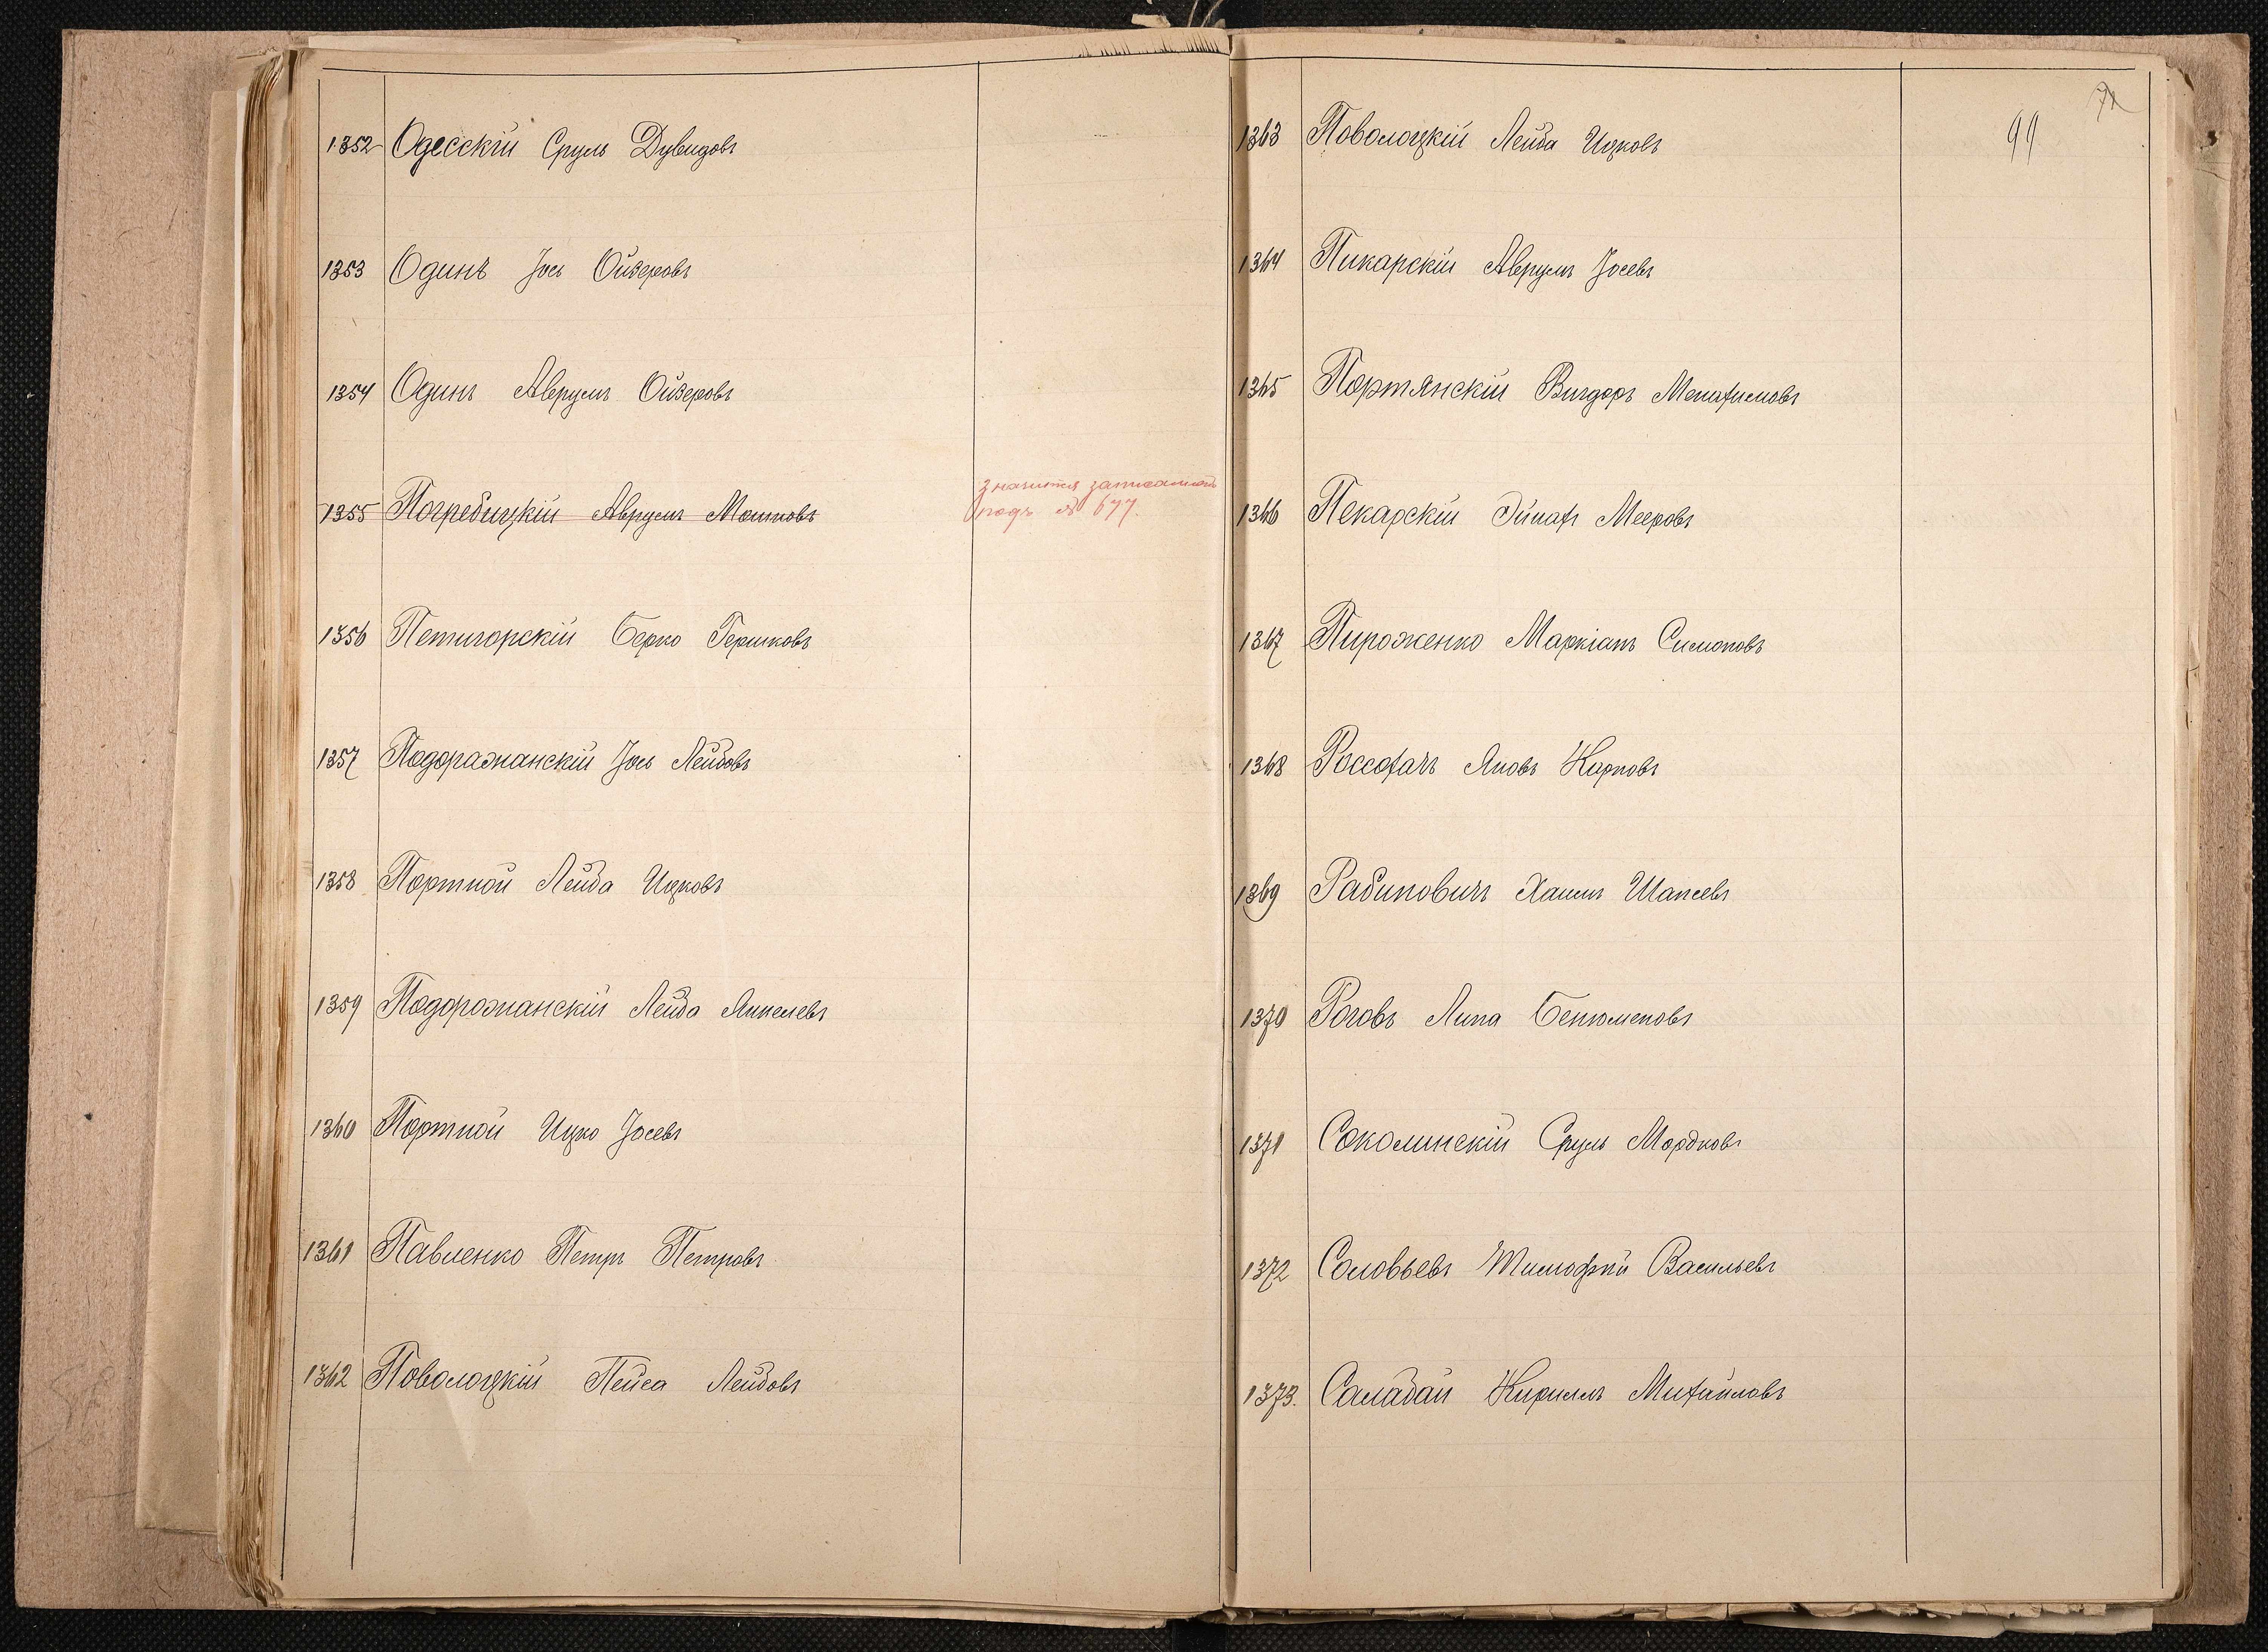 1352 Одесскій Сруль Дувидовъ
1353 Одинъ Іось Ойзеровъ
1354 Одинъ Аврумъ Ойзеровъ
1355 Погребицкій Аврумъ Мошковъ
значится записаннымъ
подъ № 677.
1356 Петигорскій Берко Гершковъ
1357 Подоражанскій Іось Лейбовъ
1358 Портной Лейба Ицковъ
1359 Подорожанскій Лейба Янкелевъ
1360 Портной Ицко Іосевъ
1361 Павленко Петръ Петровъ
1362 Поволоцкій Пейса Лейбовъ
71
99
1363 Поволоцкій Лейба Ицковъ
1364 Пикарскій Аврумъ Іосевъ
1365 Портянскій Вигдоръ Менахимовъ
1366 Пекарскій Эйнахъ Мееровъ
1367 Пироженко Маркіанъ Симоновъ
1368 Россохачъ Яковъ Карповъ
1369 Рабиновичъ Хаимъ Шапсевъ
1370 Роговъ Липа Бенюменовъ
1371 Соколинскій Сруль Мордковъ
1372 Соловьевъ Тимофѣй Васильевъ
1373. Саладай Кириллъ Михайловъ